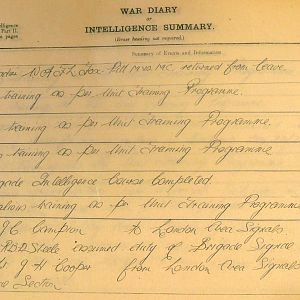 WAR DIARY
OR
INTELLIGENCE SUMMARY.
(Erase heading not required.)
telligence
Part II.
pages
Summary of Events and Information
returned from leave
training as per Unit Training Programme.
training as per Unit Training Programme.
training as per Unit Training Programme
gade Intelligence Course completed.
training as per Unit Training Programme
Campion to London Area Signals.
Steele assumed duty of Brigade Signal
H Cooper from London Area Signals
Section